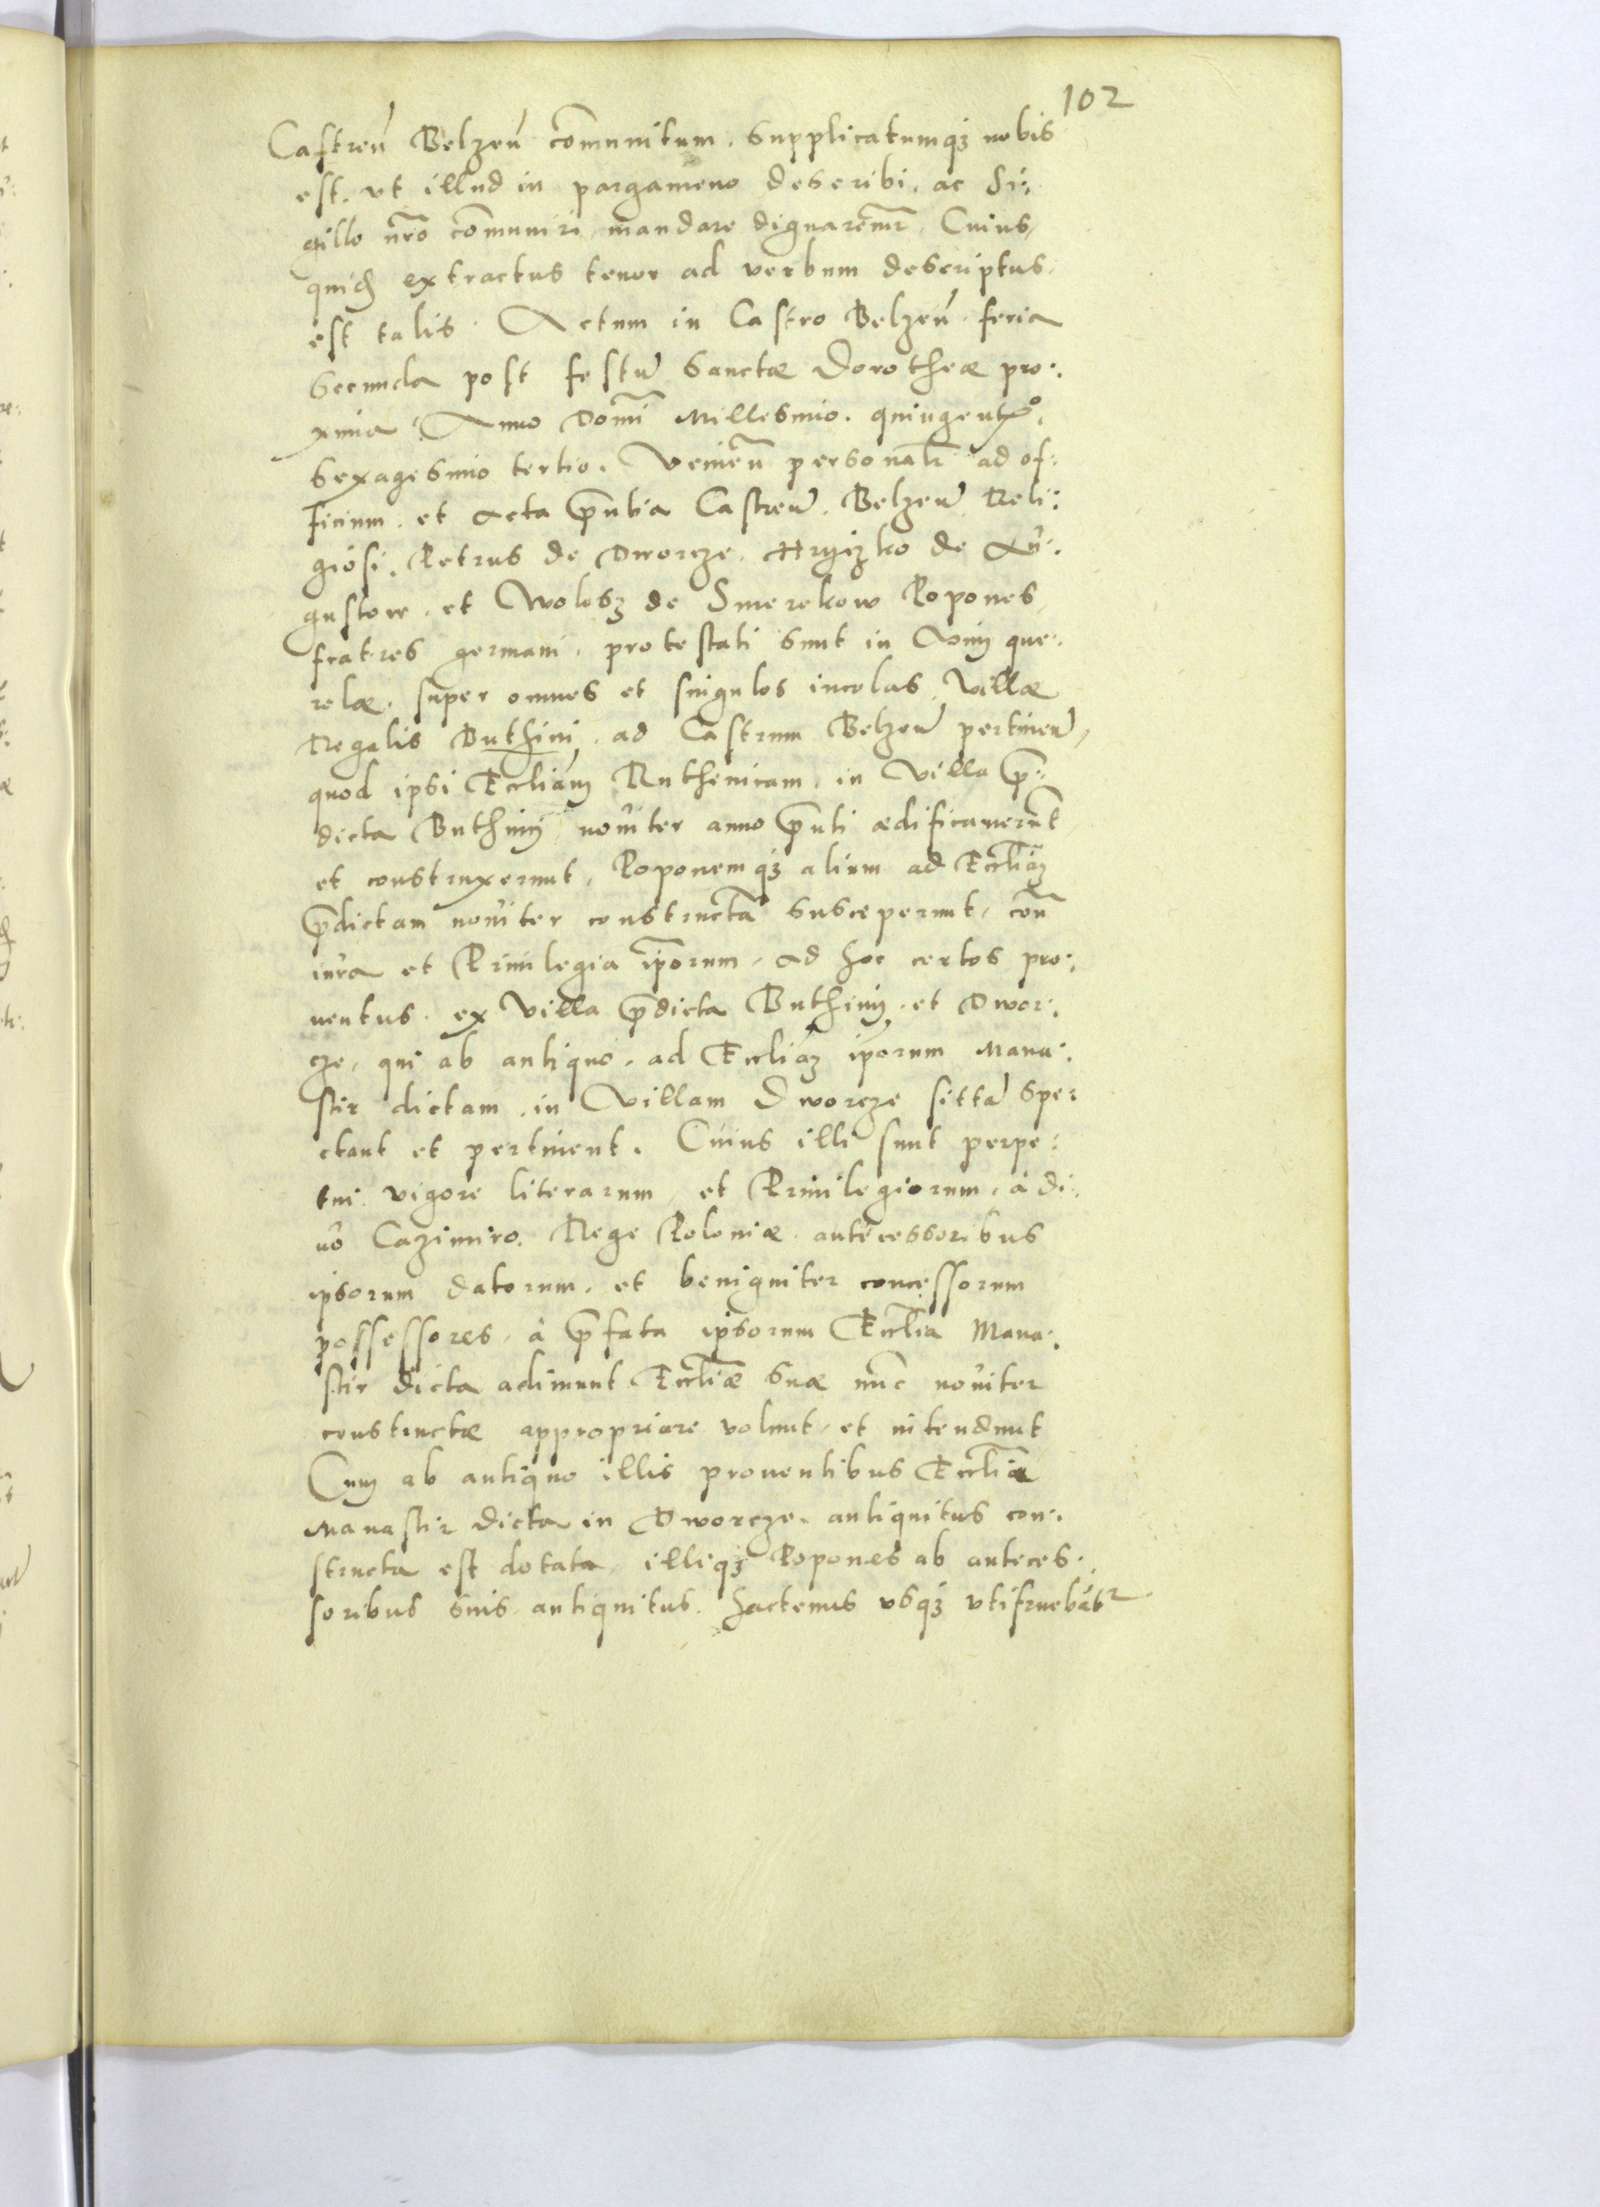 102
Castreñ Belzeñ com̄unitum. Supplicatumqꝫ nobis
est. vt illud in pargameno describi. ac Si:
gillo nr̄o com̄uniri mandare dignarem̄r. Cuius
quid extractus tenor ad verbum descriptus
est talis. Actum in Castro Belzeñ. feria
Secunda post festū Sanctæ Dorotheæ pro:
xima Anno Domī Millesimo. quingentᵒ.
Sexagesimo tertio. Venieñ personalr̄ ad of:
ficium. et Acta pn̄tia Castreñ. Belzeñ Reli:
giosi. Petrus de Dworcze. Hryczko de Au:
gustow. et Wolosz de Smerekow Popones
fratres germani. protestati sunt in Vim que:
relæ. super omnes et singulos incolas Villæ
Regalis Buthini. ad Castrum Belzeñ pertineñ
quod ipsi Eccliam Ruthenicam. in Villa p̄:
dicta Buthiny nouiter anno pn̄ti ædificauerūt
et construxerunt. Poponemqꝫ alium ad Eccliam
p̄dictam nouiter constructā susceperunt. con̄
iura et Priuilegia ip̄orum. ad hoc certos pro:
uentus. ex Villa p̄dicta Buthiny. et Dwor:
cze, qui ab antiquo. ad Eccliam ip̄orum Mana:
stir dictam. in Villam Dworcze sittā spe:
ctant et pertinent. Cuius illi sunt perpe:
tui vigore literarum, et Priuilegiorum. à di:
uo Cazimiro. Rege Poloniæ antecessoribus
ipsorum datorum. et benigniter concessorum
possessores. à p̄fata ipsorum Ecclīa Mana:
stir dicta adimunt Eccliæ Suæ nūc nouiter
constructæ appropriare volunt. et intendunt
Cum ab antiquo illis prouentibus Ecclia
Manastir dicta in Dworcze. antiquitus con:
structa est dotata. illiqꝫ Popones ab anteces:
soribus suis antiquitus. hactenus vsqꝫ vtifruebātr